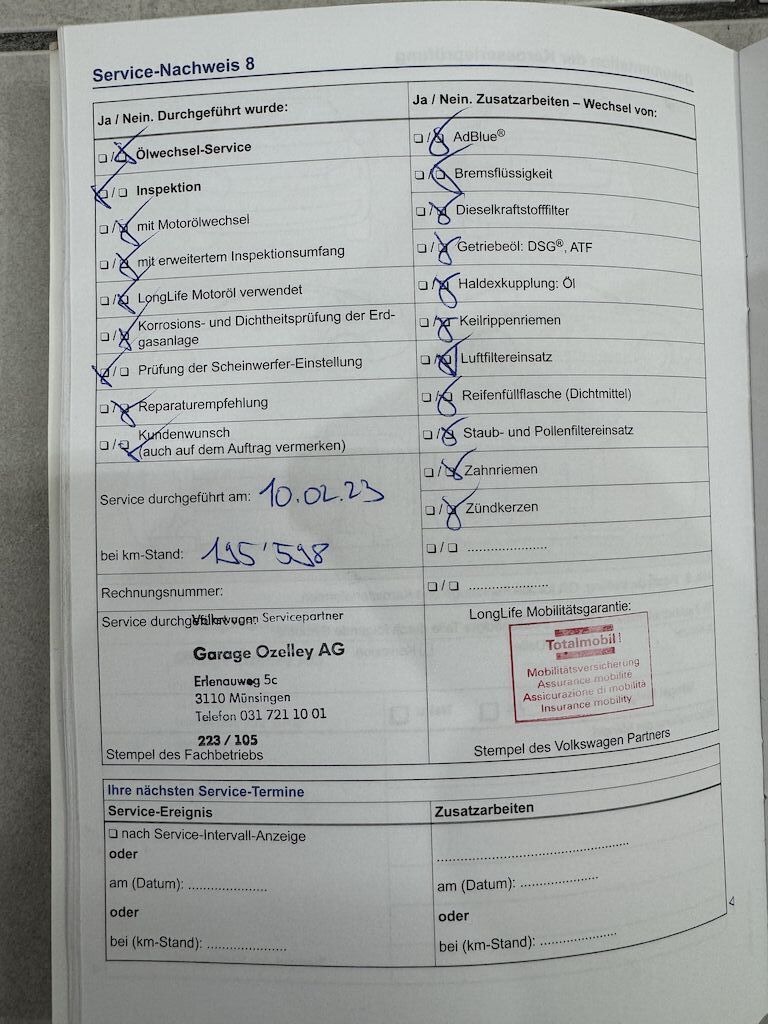 Service-Nachweis 8
Ja / Nein. Durchgeführt wurde:
❑ / ❑ Ölwechsel-Service
❑ / ❑ Inspektion
❑ / ❑ mit Motorölwechsel
❑ / ❑ mit erweitertem Inspektionsumfang
❑ / ❑ LongLife Motoröl verwendet
❑ / ❑ Korrosions- und Dichtheitsprüfung der Erd-
gasanlage
❑ / ❑ Prüfung der Scheinwerfer-Einstellung
❑ / ❑ Reparaturempfehlung
❑ / ❑ Kundenwunsch
(auch auf dem Auftrag vermerken)
Service durchgeführt am: 10.02.23
bei km-Stand: 195'598
Rechnungsnummer:
Service durchgeführt von:
Volkswagen Servicepartner
Garage Ozelley AG
Erlenauweg 5c
3110 Münsingen
Telefon 031 721 10 01
223 / 105
Stempel des Fachbetriebs
Ja / Nein. Zusatzarbeiten – Wechsel von:
❑ / ❑ AdBlue®
❑ / ❑ Bremsflüssigkeit
❑ / ❑ Dieselkraftstofffilter
❑ / ❑ Getriebeöl: DSG®, ATF
❑ / ❑ Haldexkupplung: Öl
❑ / ❑ Keilrippenriemen
❑ / ❑ Luftfiltereinsatz
❑ / ❑ Reifenfüllflasche (Dichtmittel)
❑ / ❑ Staub- und Pollenfiltereinsatz
❑ / ❑ Zahnriemen
❑ / ❑ Zündkerzen
❑ / ❑ ......................
❑ / ❑ ......................
LongLife Mobilitätsgarantie:
Totalmobil!
Mobilitätsversicherung
Assurance mobilité
Assicurazione di mobilità
Insurance mobility
Stempel des Volkswagen Partners
Ihre nächsten Service-Termine
Service-Ereignis
❑ nach Service-Intervall-Anzeige
oder
am (Datum): ......................
oder
bei (km-Stand): ......................
Zusatzarbeiten
......................................................
am (Datum): ......................
oder
bei (km-Stand): ......................